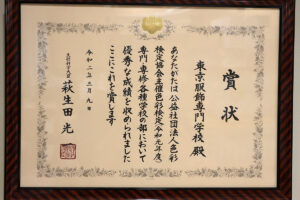 賞状
東京服飾専門学校 殿
あなたがたは公益社団法人色彩
検定協会主催色彩検定令和元年度
専門・専修各種学校の部において
優秀な成績を収められました
ここにこれを賞します
令和二年三月九日
文部科学大臣
萩生田光一